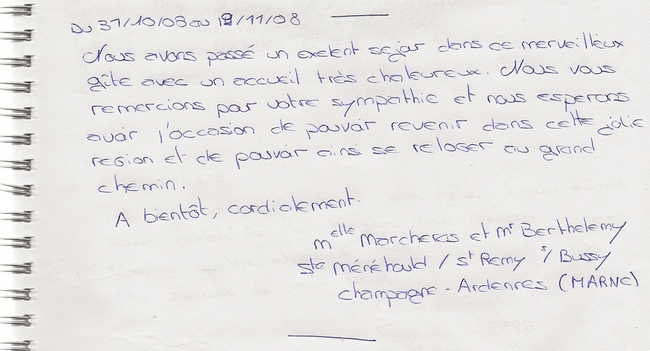 Du 31/10/08 au 12/11/08
Nous avons passé un exelent sejour dans ce merveilleux
gîte avec un accueil très chaleureux. Nous vous
remercions par votre sympathie et nous esperons
avoir l'occasion de pouvoir revenir dans cette jolie
region et de pouvoir ains se reloger au grand
chemin.
A bientôt, cordialement.
Melle Marcheras et Mr Berthelemy
Ste Ménéhould / St Remy s/ Bussy
Champagne - Ardennes (MARNE)